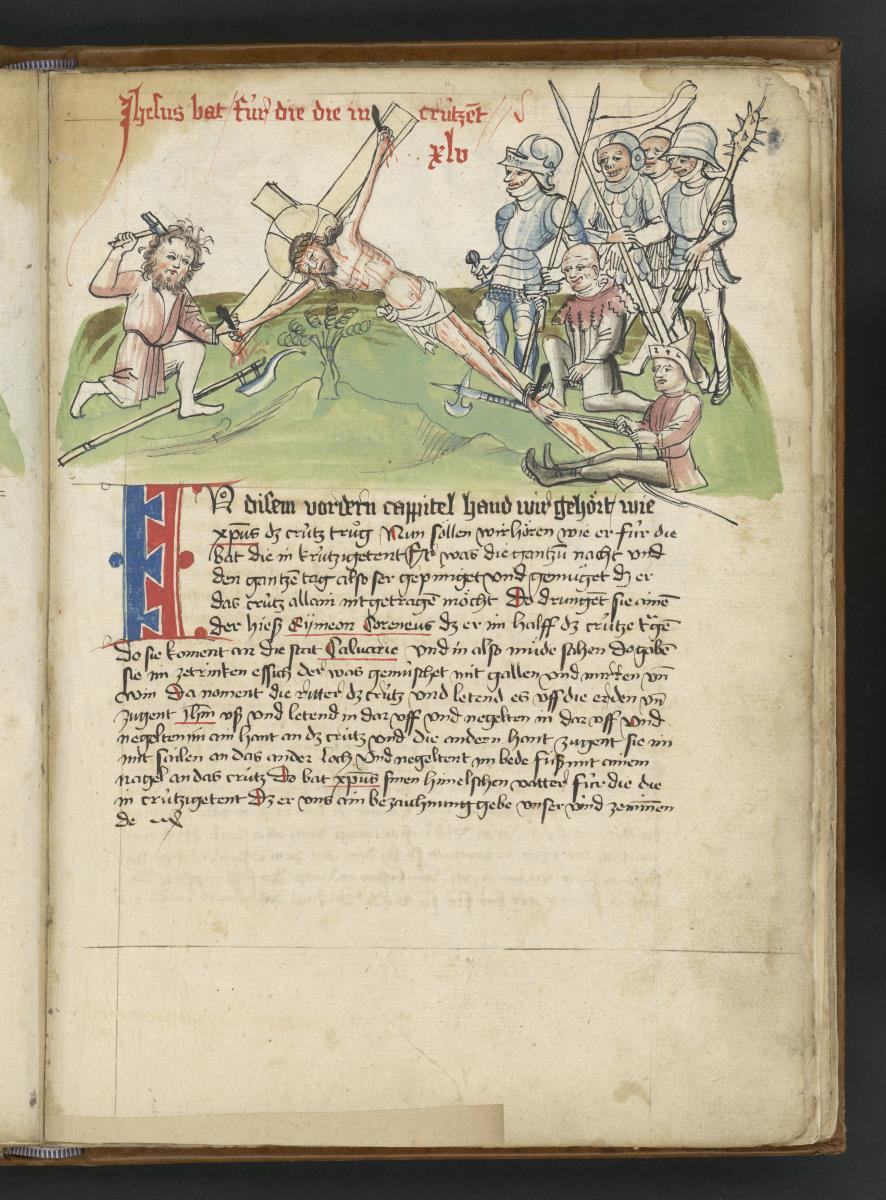 Jhesus bat für die die in crützet̄
xlv
37
IN disem vordern cappitel hand wir gehört wie
xp̄us dz crütz trůg Nun söllen wir hören wie er für die
bat die in krützigetent Er was die gantzū nacht vnd
den gantzē tag also ser gepiniget vnd gemüget dz er
das crütz allain nit getragē möcht Do drungēt sie ainē
der hieß Symeon Coreneus dz er im halff dz crütze tragē
do sie koment an die stat Caluarie vnd in also müde sahen do gabē
sie im zetrinken essich der was gemüschet mit gallen vnd mirren vn̄
win Da noment die ritter dz crütz vnd letend es vff die erden vn̄
zugent Jhm vß vnd letend in dar vff vnd negelten in dar vff vnd
negelten im ain hant an dz crütz vnd die andern hant zugent sie im
mit sailen an das ander loch vnd negeltent im bede füß mit ainem
nagel an das crütz Do bat xp̄us sinen himelschen vatter für die die
in crützigetent Dz er vns ain bezaichnung gebe vnser vind
de